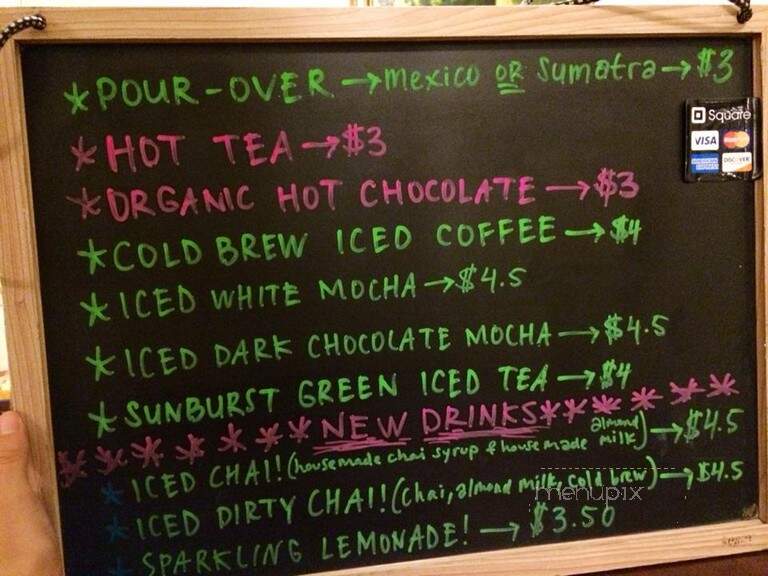 *POUR-OVER→Mexico OR Sumatra→$3
Square
VISA MasterCard
AMERICAN EXPRESS DISCOVER
*HOT TEA→$3
*ORGANIC HOT CHOCOLATE→$3
*COLD BREW ICED COFFEE→$4
*ICED WHITE MOCHA→$4.5
*ICED DARK CHOCOLATE MOCHA→$4.5
*SUNBURST GREEN ICED TEA→$4
*******NEW DRINKS******
*ICED CHAI!(housemade chai syrup & housemade almond milk)→$4.5
*ICED DIRTY CHAI!(chai, almond milk, cold brew)→$4.5
*SPARKLING LEMONADE!→$3.50
menupix